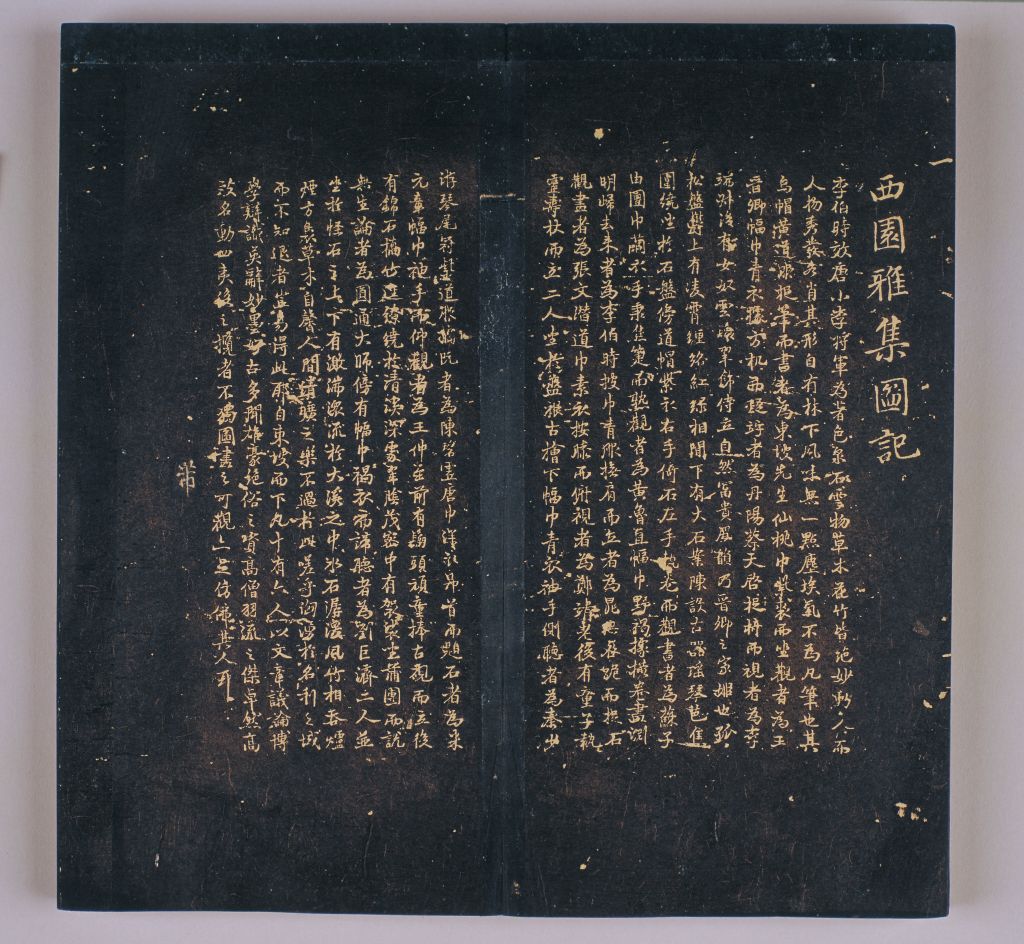 西園雅集圖記
李伯時效唐小李將軍為著色泉石雲物草木花竹皆絕妙動人而
人物秀發各肖其形自有林下風味無一點塵埃氣不為凡筆也其
烏帽黃道服捉筆而書者為東坡先生仙桃巾紫裘而坐觀者為王
晉卿幅巾青衣據方机而凝竚者為丹陽蔡天啓捉椅而視者為李
端叔後有女奴雲鬟翠飾侍立自然富貴風韻乃晉卿之家姬也孤
松盤鬱上有凌霄纏絡紅綠相間下有大石案陳設古器瑤琴芭蕉
圍繞坐於石盤傍道帽紫衣右手倚石左手執卷而觀書者為蘇子
由團巾繭衣手秉蕉箑而熟觀者為黃魯直幅巾野褐據橫卷畫淵
明歸去來者為李伯時披巾青服撫肩而立者為晁無咎跪而捉石
觀畫者為張文潛道巾素衣按膝而俯視者為鄭靖老後有童子執
靈壽杖而立二人坐於盤根古檜下幅巾青衣袖手側聽者為秦少
游琴尾冠紫道服摘阮者為陳碧虛唐巾深衣昂首而題石者為米
元章幅巾袖手而仰觀者為王仲至前有鬅頭頑童捧古硯而立後
有錦石橋竹逕繚繞於清溪深處翠陰茂密中有袈裟坐蒲團而說
無生論者為圓通大師傍有幅巾褐衣而諦聽者為劉巨濟二人並
坐於怪石之上下有激湍潨流於大溪之中水石潺湲風竹相吞爐
煙方裊草木自馨人間清曠之樂不過於此嗟乎洶湧於名利之域
而不知退者豈易得此耶自東坡而下凡十有六人以文章議論博
學辯識英辭妙墨好古多聞雄豪絕俗之資高僧羽流之傑卓然高
致名動四夷後之攬者不獨圖畫之可觀亦足仿佛其人耳
芾